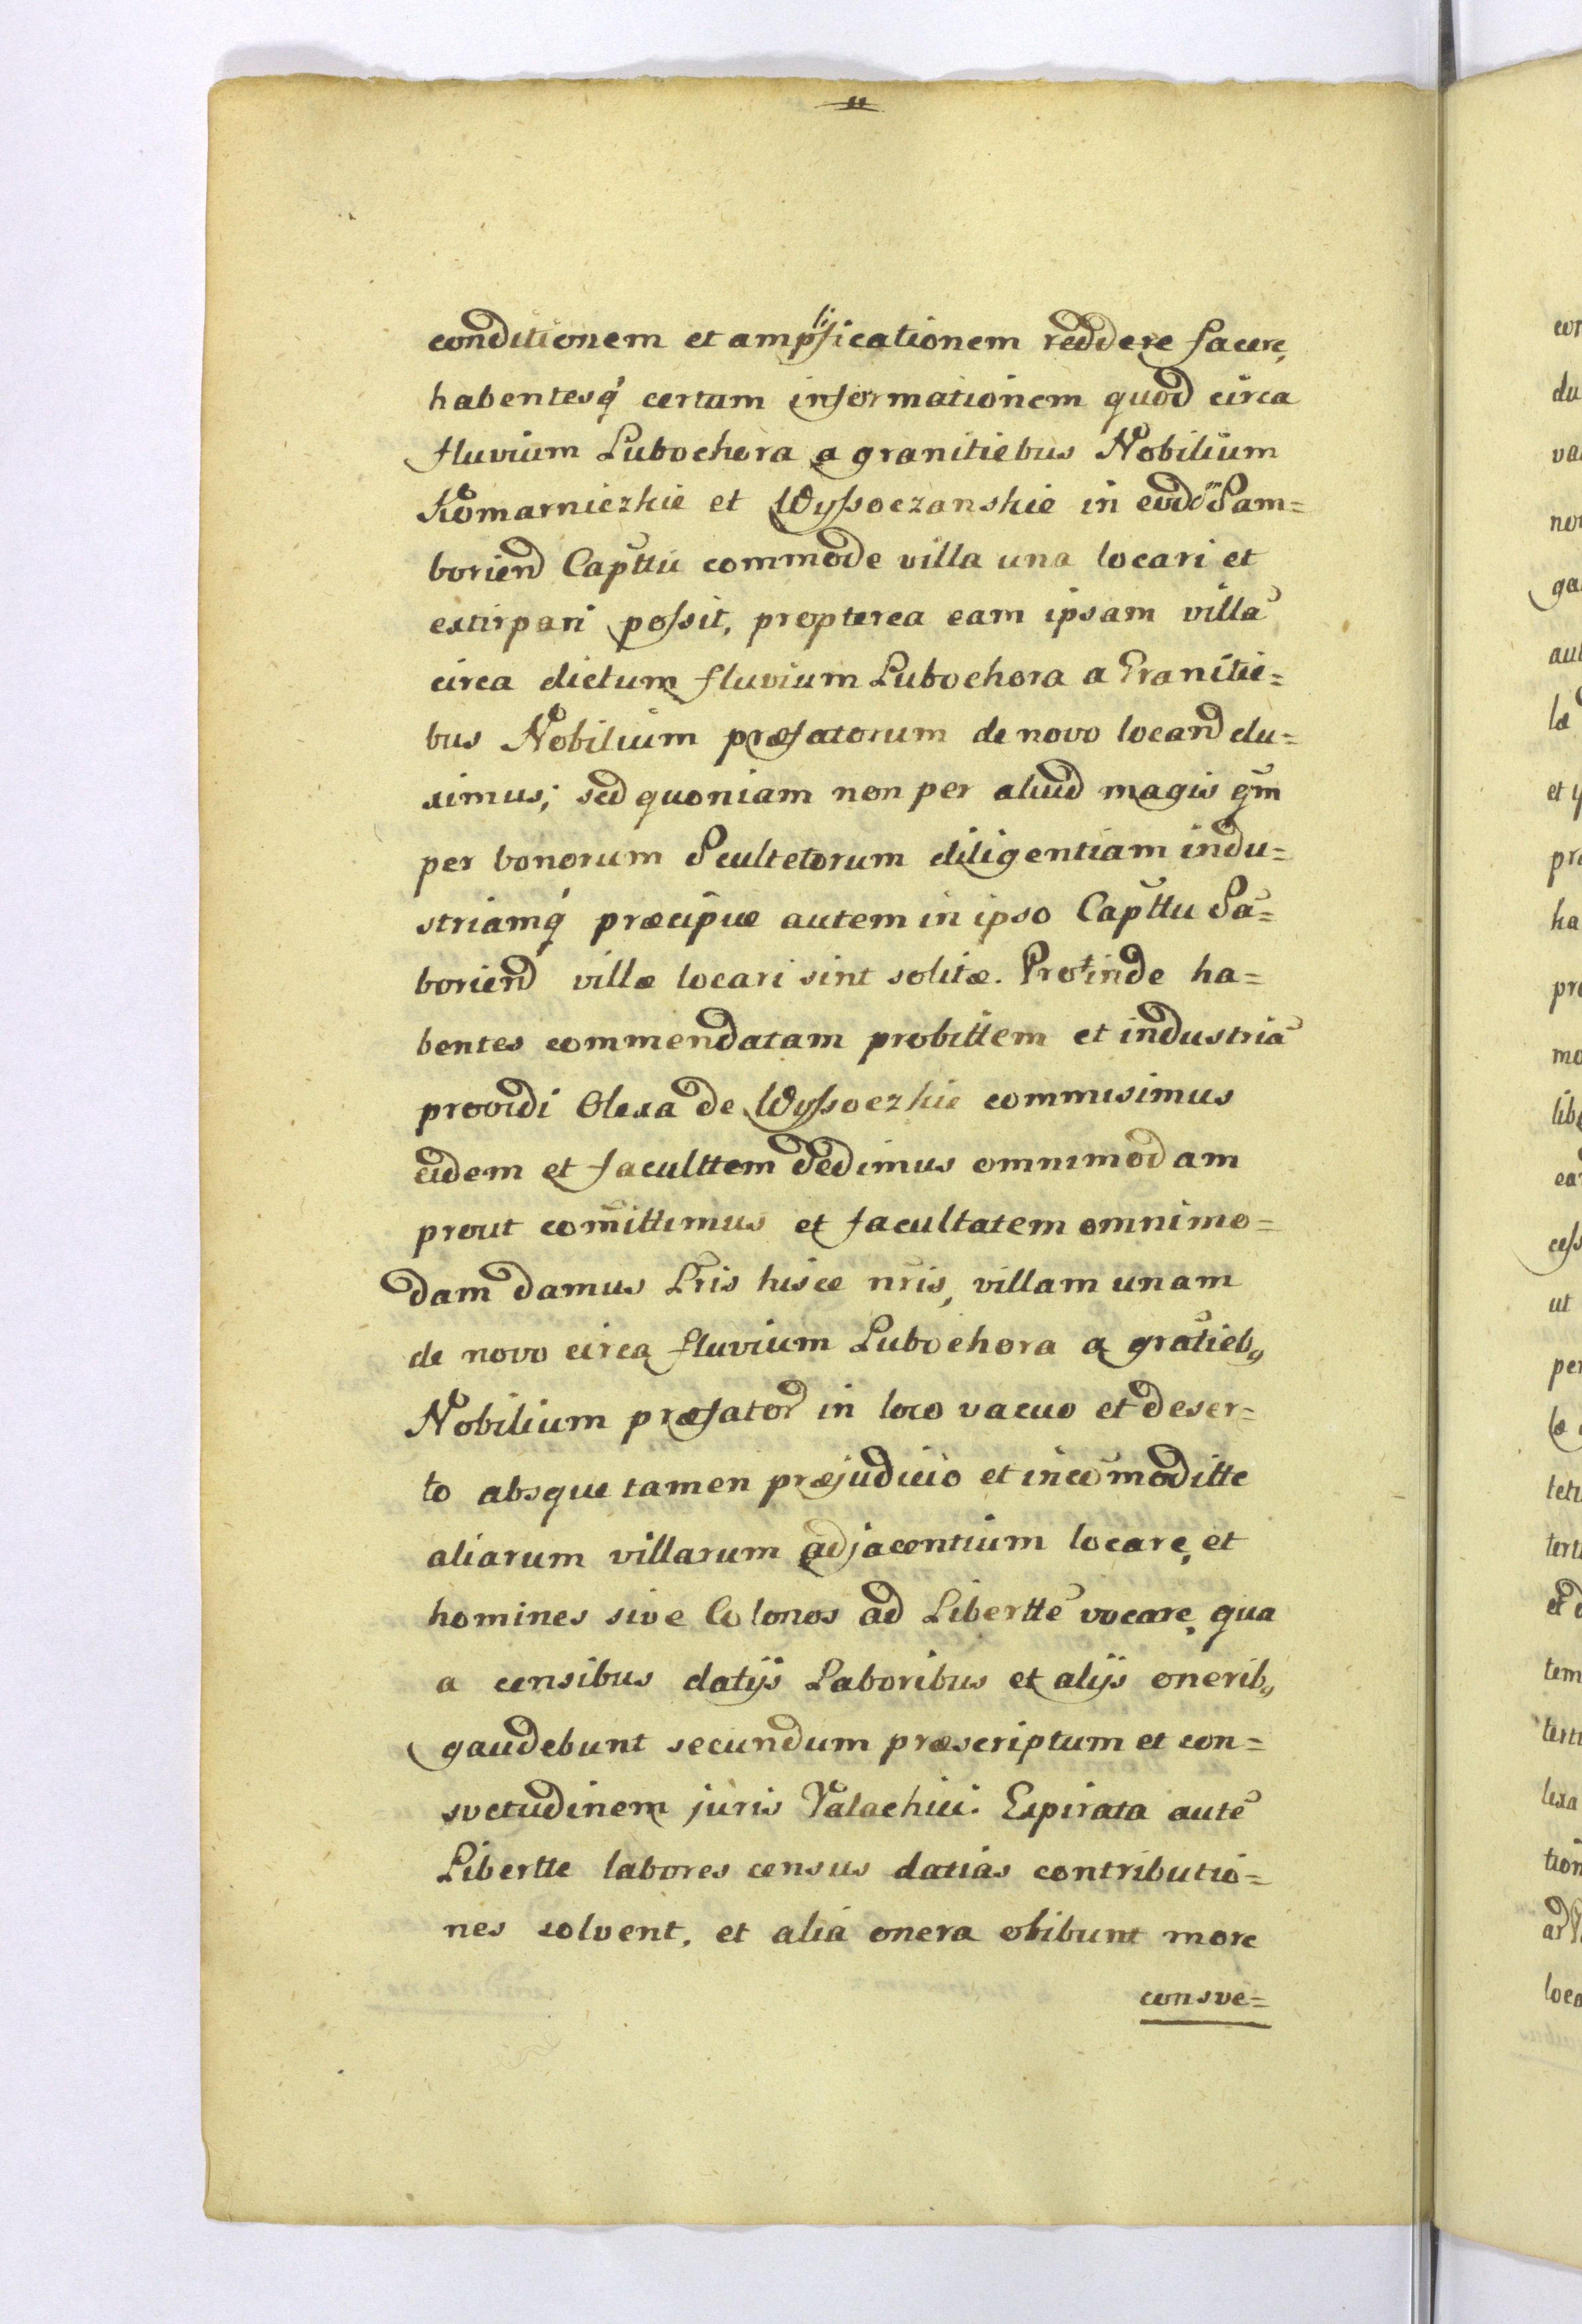 conditionem et amplificationem reddere facere,
habentesq́ certam informationem quod circa
fluvium Lubochora a granitiebus Nobilium
Komarniczkie et Wyſsoczanskie in eodō Sam=
boriend Capttu commode villa una locari et
extirpari poſsit, propterea eam ipsam villā
circa dictum fluvium Lubochora a Granitie=
bus Nobilium præfatorum de novo locand du=
ximus; sed quoniam non per aliud magis qm̄
per bonorum Scultetorum diligentiam indu=
striamq́ præcipue autem in ipso Capttu Sā=
boriend villæ locari sint solitæ. Protinde ha=
bentes commendatam probittem et industriā
providi Olexa de Wyſsoczkie commisimus
eidem et faculttem dedimus omnimodam
prout com̄ittimus et facultatem omnimo=
dam damus Lris hisce nris, villam unam
de novo circa fluvium Lubochora a gratieb9
Nobilium præfator in loco vacuo et deser=
to absque tamen præjudicio et incōmoditte
aliarum villarum adjacentium locare, et
homines sive Colonos ad Liberttē vocare, qua
a censibus datijs Laboribus et alijs onerib9
gaudebunt secundum præscriptum et con=
svetudinem juris Valachici. Expirata autē
Libertte labores census datias contributio=
nes solvent, et alia onera obibunt more
consve=
con
du
va
no
ga
aul
læ
et
pr
ha
pr
mo
lib
ea
ceſs
ut
per
læ
tet
tert
et
tem
tert
lexa
tion
ad
loca